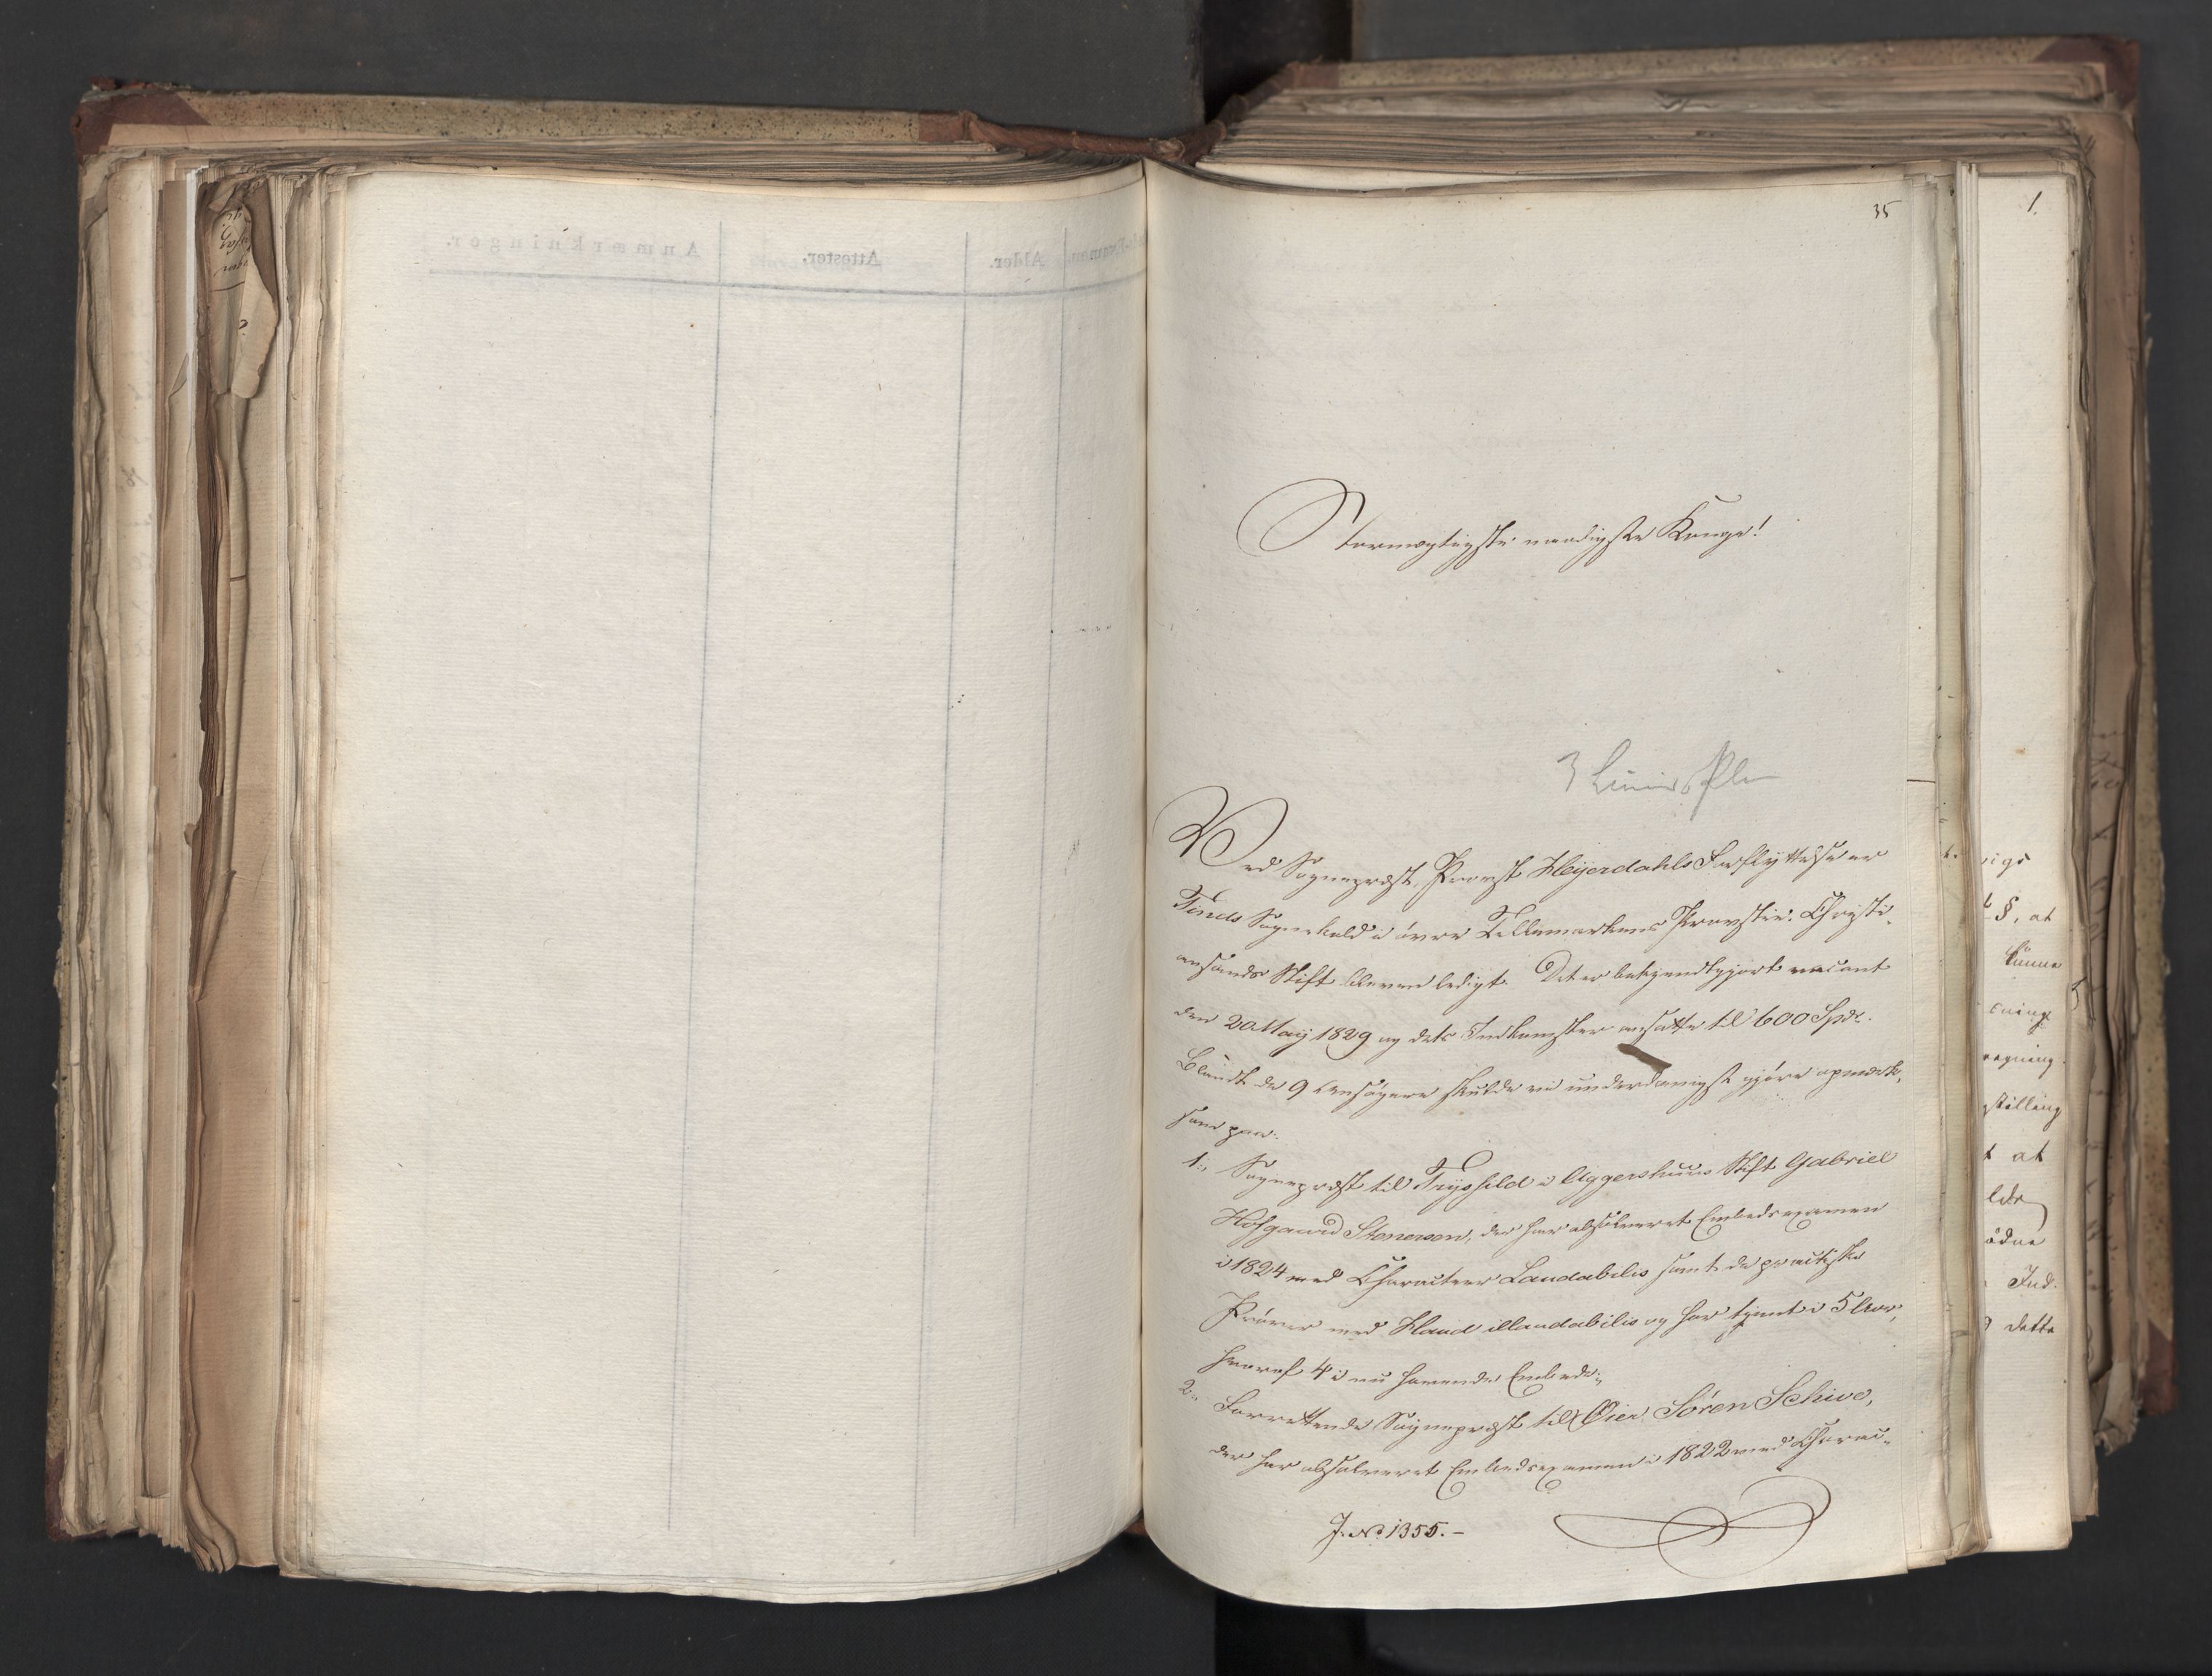 Anmærkninger.
Attester.
Alder.
35
Stormægtigste naadigste Konge!
Ved Sognepræst, Provst Heyerdahls Forflyttelse er
Tinds Sognekald i øvre Tellemarkens Provstie, Christi-
ansands Stift bleven ledigt. Det er bekjendtgjort vacant
den 20 May 1829 og dets Indkomster ansatte til 600 Spd.
Blandt de 9 Ansøgere skulde vi underdanigst gjøre opmærk-
som paa:
1., Sognepræst til Trysfild i Aggershuus Stift Gabriel
Hofgaard Stenersen, der har absolveret Embedsexamen
i 1824 med Characteer Laudabilis samt de practiske
Prøver med Haud illaudabilis og har tjent i 5 Aar,
hvoraf 4 i nu havende Embede;
2., Forrettende Sognepræst til Øier Søren Schive,
der har absolveret Embedsexamen i 1822 med Charac-
J. No 1355. -
1.
§, at
kunne
stilling
t at
Ind-
dette